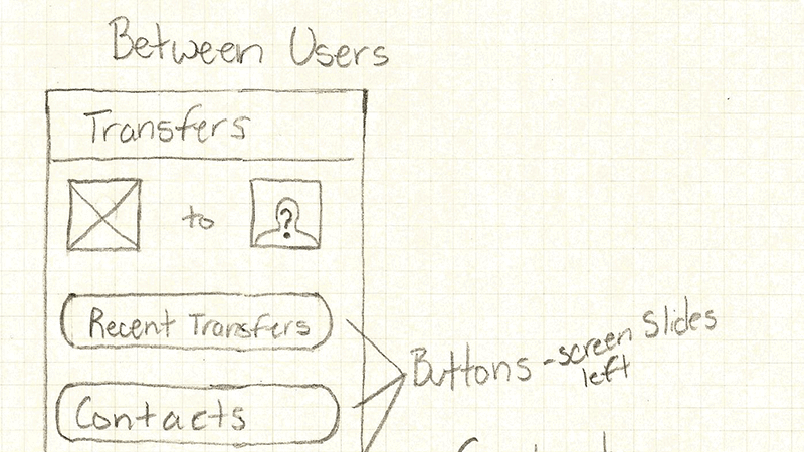 Between Users
Transfers
to
?
Recent Transfers
Contacts
Buttons - screen Slides
left